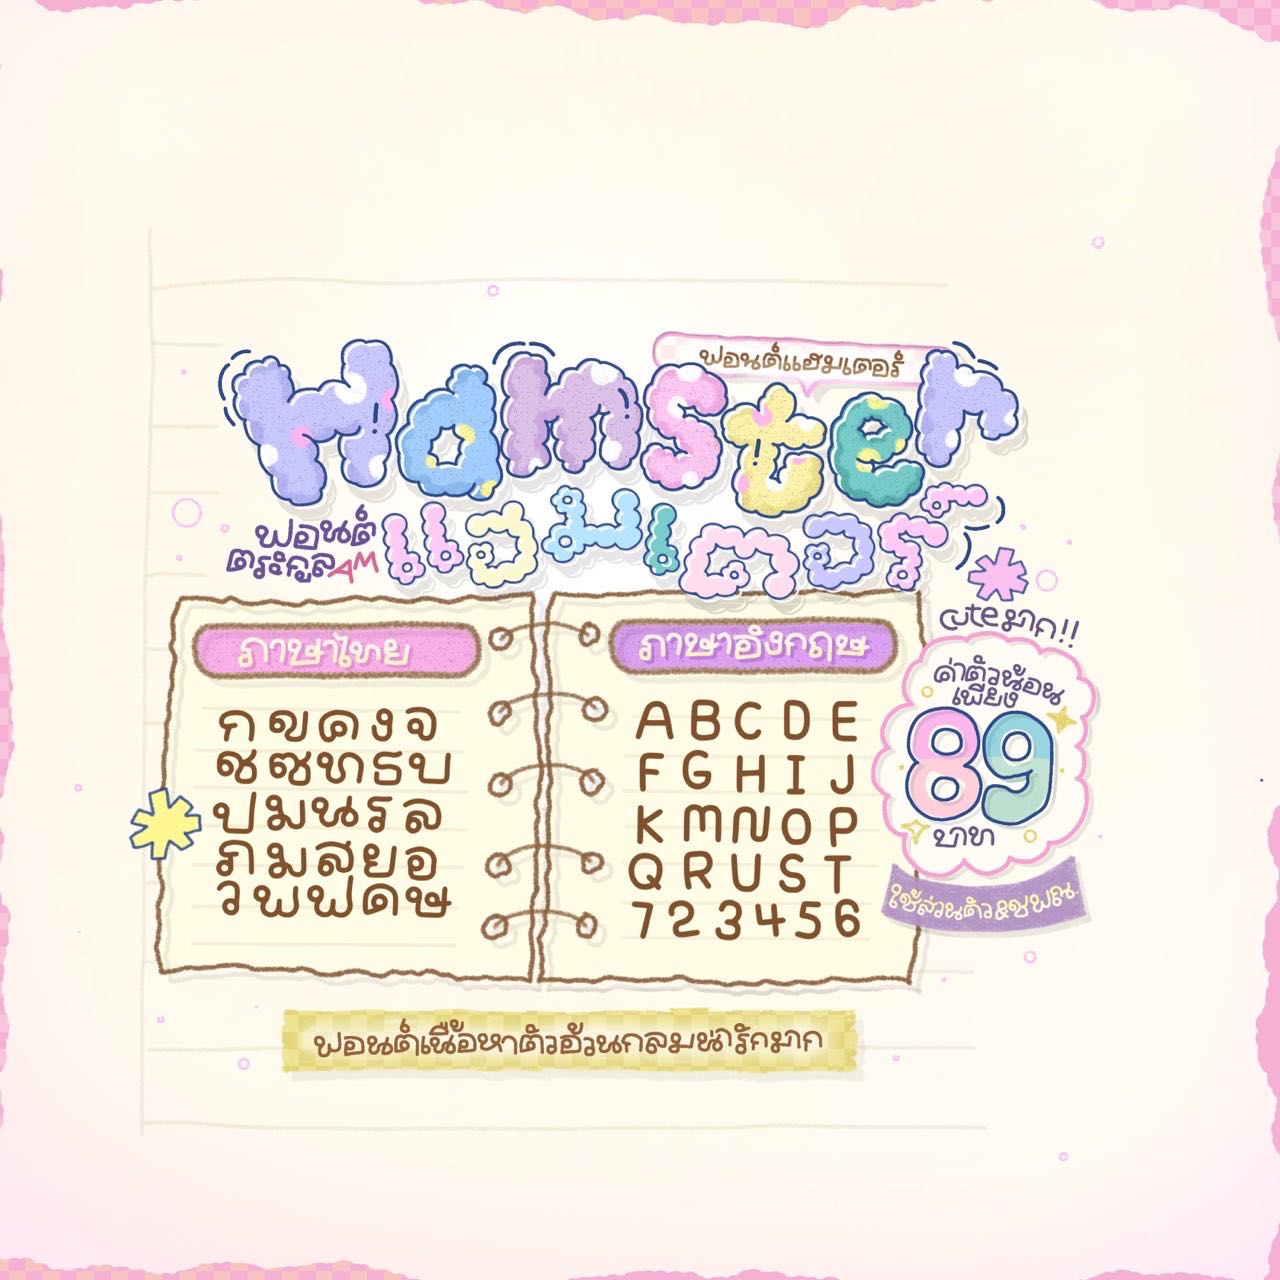 ฟอนต์แฮมเตอร์
Hamster
ฟอนต์
ตระกูลAM
แฮมเตอร์
cuteมาก!!
ภาษาไทย
ภาษาอังกฤษ
ก ข ค ง จ
ช ซ ท ธ บ
ป ม น ร ล
ภ ม ส ย อ
ว พ ฟ ด ษ
A B C D E
F G H I J
K M N O P
Q R U S T
1 2 3 4 5 6
ค่าตัวน้อน
เพียง
89
บาท
ใช้ส่วนตัว&ชพณ.
ฟอนต์เนื้อหาตัวอ้วนกลมน่ารักมาก